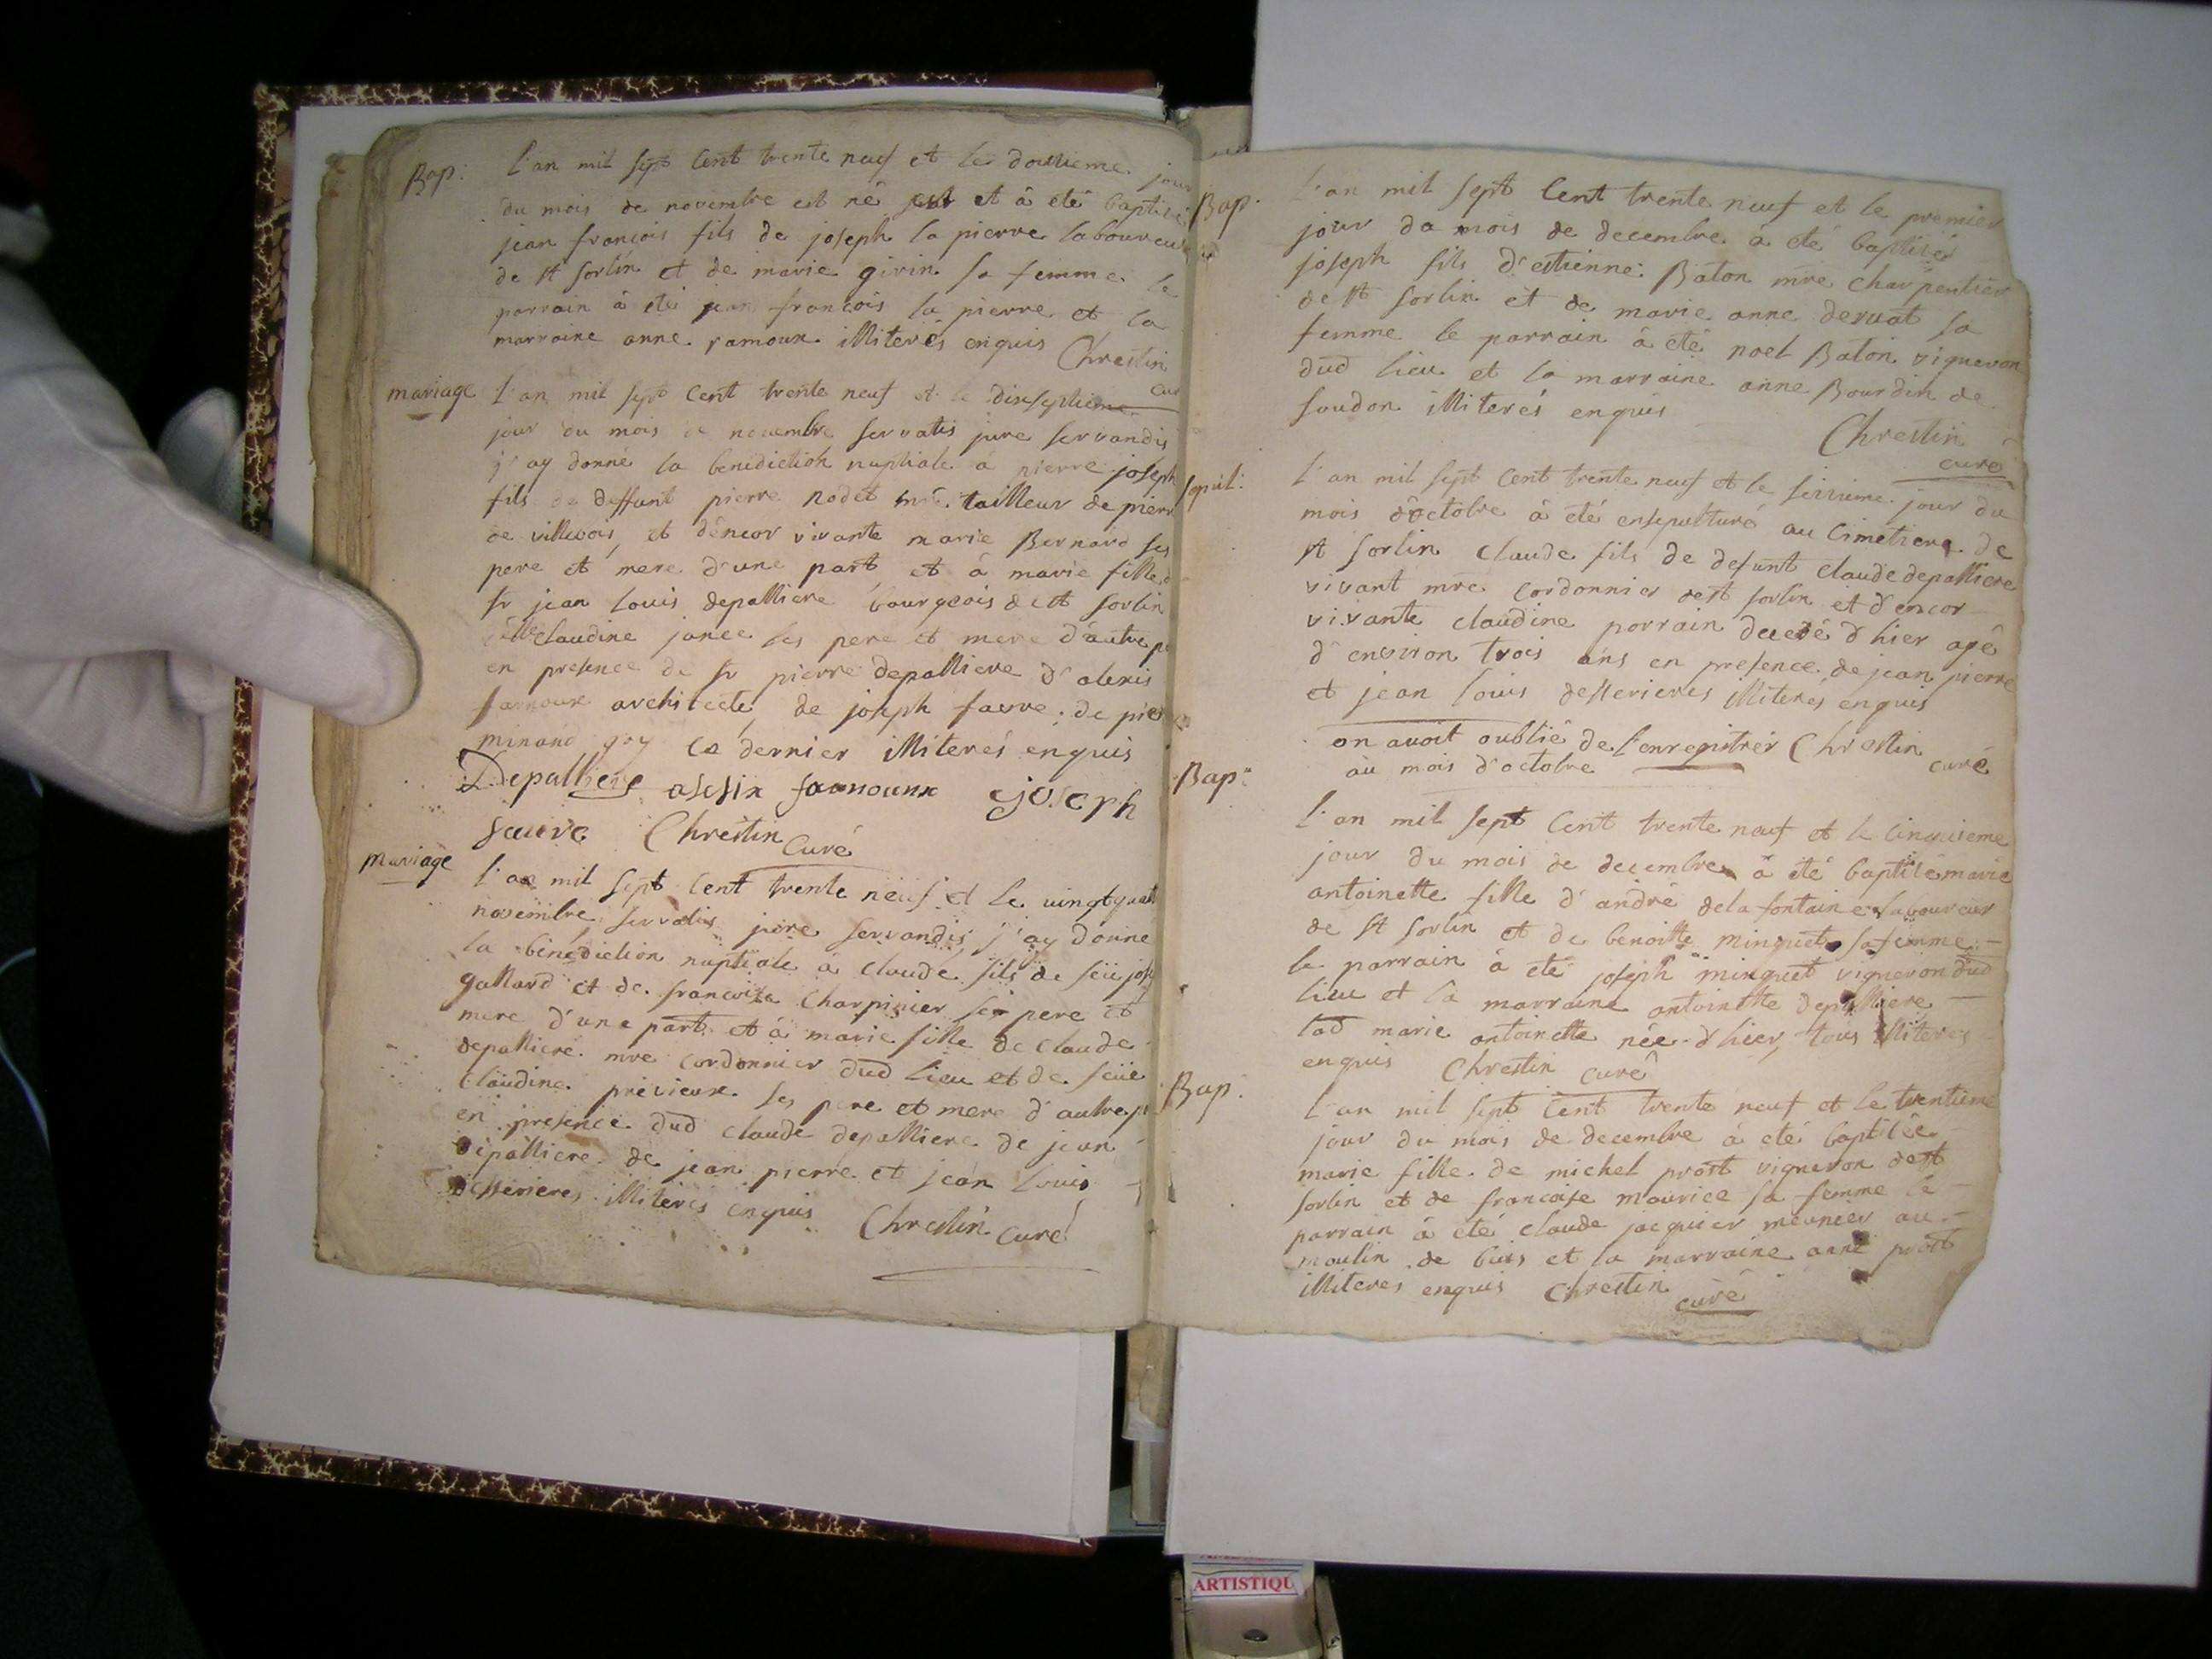 Bap: l'an mil sept cent trente neuf et le douzieme jour
du mois de novembre est né et à eté baptisé
jean françois fils de joseph la pierre laboureur
de st sorlin et de marie girin sa femme le
parrain à eté jean françois la pierre et la
marraine anne ramoux illiterés enquis Chrestin
curé
mariage l'an mil sept cent trente neuf et le dixseptieme
jour du mois de novembre servatis jure servandis
j'ay donné la benediction nuptiale à pierre joseph
fils de deffunt pierre nodet mre tailleur de pierre
de villebois, et d'encor vivante marie Bernard ses
pere et mere d'une part et à marie fille de
sr jean louis depalliere bourgeois de st sorlin
claudine janee ses pere et mere d'autre
en presence de sr pierre depalliere d'alexis
farnoux architecte, de joseph favre, de
minand goy ce dernier illiterés enquis
Depalliere farnoux joseph
favre Chrestin
curé
mariage l'an mil sept cent trente neuf et le vingt
novembre servatis jure servandis, j'ay donne
la benediction nuptiale à claude fils de feü
gallard et de françoise charpinier ses pere et
mere d'une part et à marie fille de claude
depalliere mre cordonnier dud lieu et de feüe
claudine prévieux ses pere et mere d'autre
en presence dud claude depalliere de jean
depalliere de jean pierre et jean louis
desserieres illiterés enquis Chrestin curé
Bap: l'an mil sept cent trente neuf et le premier
jour du mois de decembre à eté baptisés
joseph fils d'estienne Baton mre charpentier
de st sorlin et de marie anne dervat sa
femme le parrain à eté noel Baton vigneron
dud lieu et la marraine anne Bourdin de
soudon illiterés enquis
Chrestin
curé
sepul: l'an mil sept cent trente neuf et le seizieme jour du
mois d'octobre à eté ensepulturé au cimetiere de
st sorlin claude fils de defunt claude depalliere
vivant mre cordonnier de st sorlin et d'encor
vivante claudine porrain decedé d'hier agé
d'environ trois ans en presence de jean pierre
et jean louis desserieres illiterés enquis
on avoit oublié de l'enregistrer Chrestin
au mois d'octobre curé
Bap:
l'an mil sept cent trente neuf et le cinquieme
jour du mois de decembre à eté baptisé marie
antoinette fille d'andré dela fontaine laboureur
de st sorlin et de benoitte minguet sa femme
le parrain à eté joseph minguet vigneron dud
lieu et la marraine antoinette depalliere
lad marie antoinette née d'hier, tous illiteres
enquis Chrestin curé
Bap: l'an mil sept cent trente neuf et le trentieme
jour du mois de decembre à eté baptisée
marie fille de michel prost vigneron de st
sorlin et de françoise maurice sa femme le
parrain à eté claude jacquier meunier au
moulin de buis et la marraine anne prost
illiteres enquis Chrestin
curé
ARTISTIQU